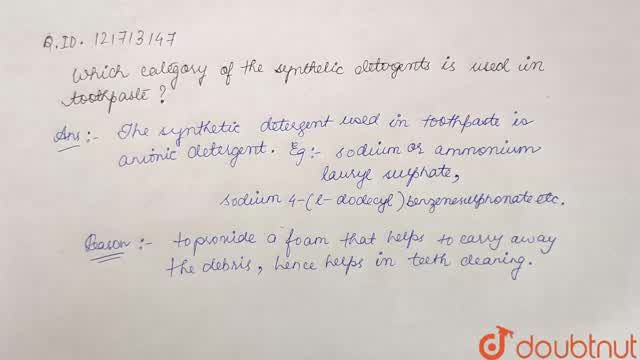 Q.ID. 121713147
Which category of the synthetic detergents is used in
toothpaste?
Ans:- The synthetic detergent used in toothpaste is
anionic detergent. Eg:- sodium or ammonium
lauryl sulphate,
sodium 4-(1-dodecyl) benzenesulphonate etc.
Reason:- to provide a foam that helps to carry away
the debris, hence helps in teeth cleaning.
doubtnut